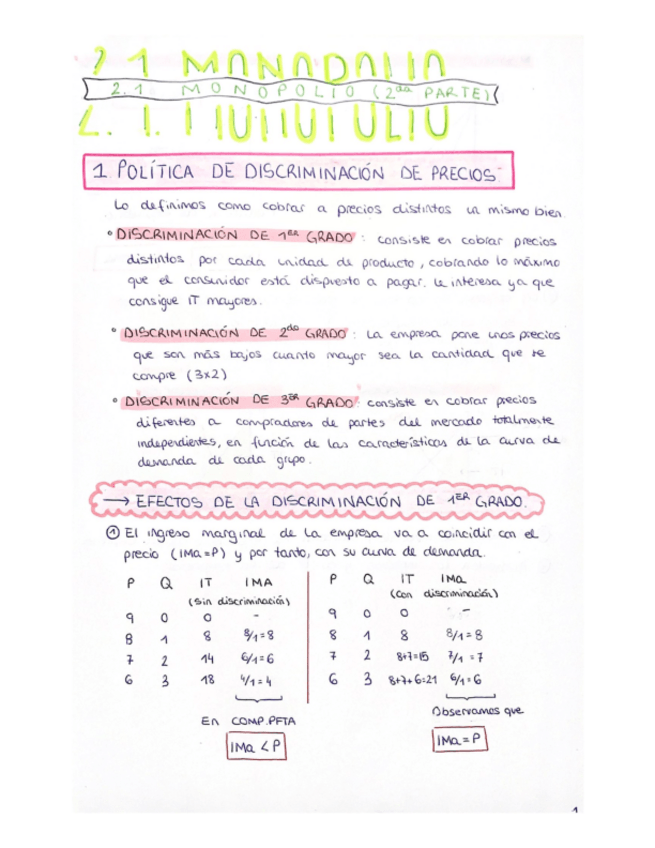 2.1 MONOPOLIO
2.1 MONOPOLIO (2da PARTE)
1 POLÍTICA DE DISCRIMINACIÓN DE PRECIOS
Lo definimos como cobrar a precios distintos un mismo bien
• DISCRIMINACIÓN DE 1ER GRADO: consiste en cobrar precios
distintos por cada unidad de producto, cobrando lo máximo
que el consumidor está dispuesto a pagar. Le interesa ya que
consigue IT mayores.
• DISCRIMINACIÓN DE 2do GRADO: La empresa pone unos precios
que son más bajos cuanto mayor sea la cantidad que se
compre (3x2)
• DISCRIMINACIÓN DE 3ER GRADO: consiste en cobrar precios
diferentes a compradores de partes del mercado totalmente
independientes, en función de las características de la curva de
demanda de cada grupo.
→ EFECTOS DE LA DISCRIMINACIÓN DE 1ER GRADO.
① El ingreso marginal de la empresa va a coincidir con el
precio (IMa=P) y por tanto, con su curva de demanda.
P Q IT IMA
(sin discriminación)
9 0 0 -
8 1 8 8/1=8
7 2 14 6/1=6
6 3 18 4/1=4
EN COMP.PFTA
IMa < P
P Q IT IMa
(con discriminación)
9 0 0 -
8 1 8 8/1=8
7 2 8+7=15 7/1=7
6 3 8+7+6=21 6/1=6
Observamos que
IMa=P
1